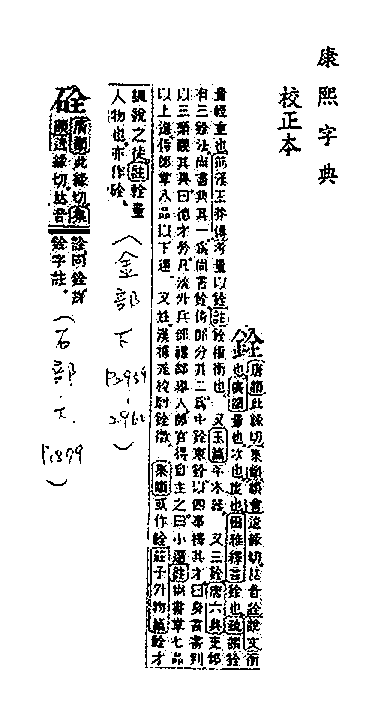 康熙字典
校正本
銓 唐韻此緣切集韻韻會逡緣切𠀤音詮說文衡
也廣韻量也次也度也爾雅釋言銓也疏謂銓
量輕重也前漢王莽傳考量以銓註銓權衡也 又玉篇平木器 又三銓唐六典吏部
有三銓法尚書典其一爲尚書銓侍郎分其二爲中銓東銓以四事擇其才曰身言書判
以三類觀其異曰德才勞凡流外兵部禮部舉人郎官得自主之曰小選註尚書掌七品
以上選侍郎掌八品以下選 又姓漢校尉銓徵 集韻或作硂莊子外物篇銓才
諷說之徒註銓量
人物也亦作硂
（金部 下 P2959-2962）
硂 唐韻此緣切集
韻逡緣切𠀤音
詮同銓詳
銓字註
（石部.下 P1879）